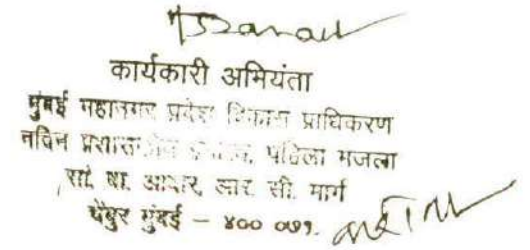 कार्यकारी अभियंता
मुंबई महानगर प्रदेश विकास प्राधिकरण
नविन प्रशासकीय इमारत, पहिला मजला
आर. सी. मार्ग
चेंबुर मुंबई – ४०० ०७१.